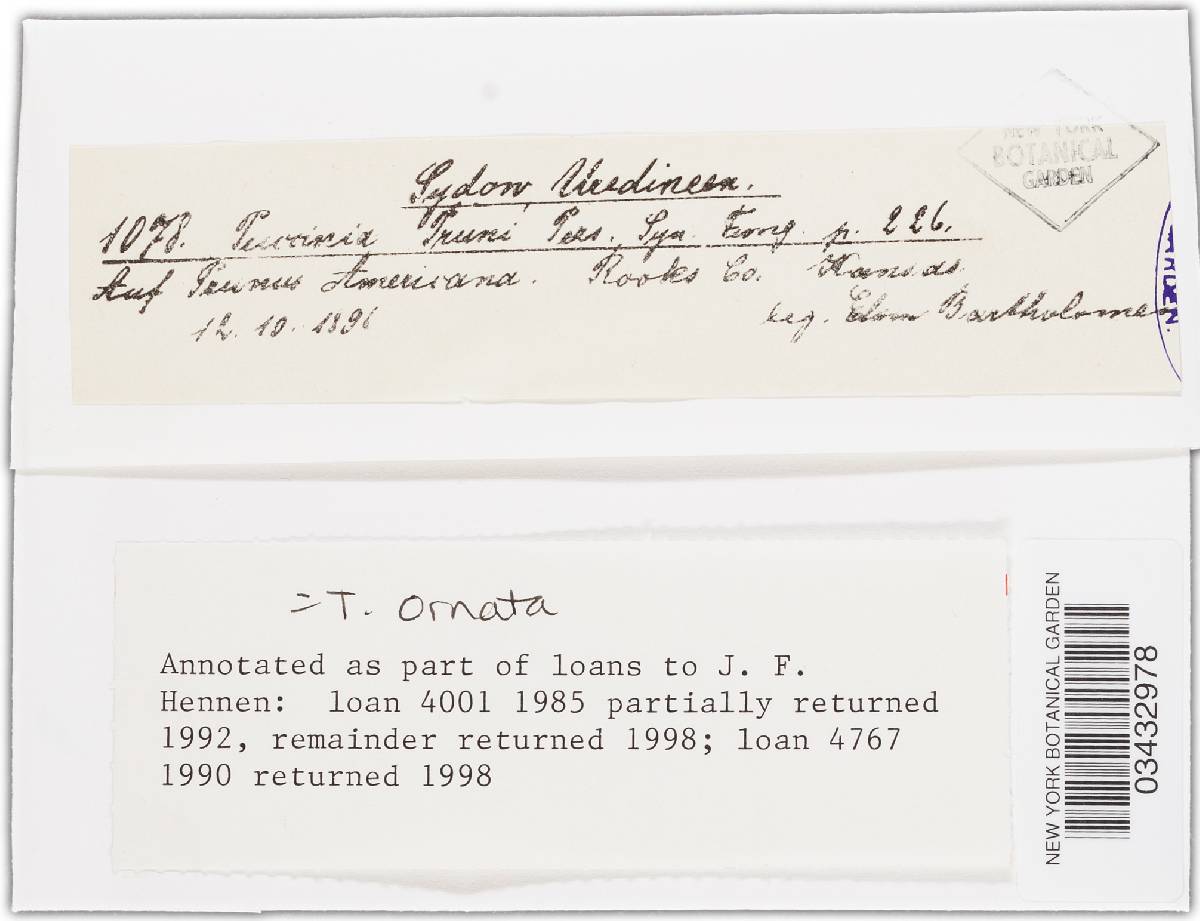 Sydow, Uredineen.
1078. Puccinia Pruni Pers. Syn. Fung. p. 226.
Auf Prunus Americana. Rooks Co. Kansas
12. 10. 1896 leg. Elam Bartholomew
NEW YORK
BOTANICAL
GARDEN
ARDEN.
= T. ornata
Annotated as part of loans to J. F.
Hennen: loan 4001 1985 partially returned
1992, remainder returned 1998; loan 4767
1990 returned 1998
NEW YORK BOTANICAL GARDEN
03432978